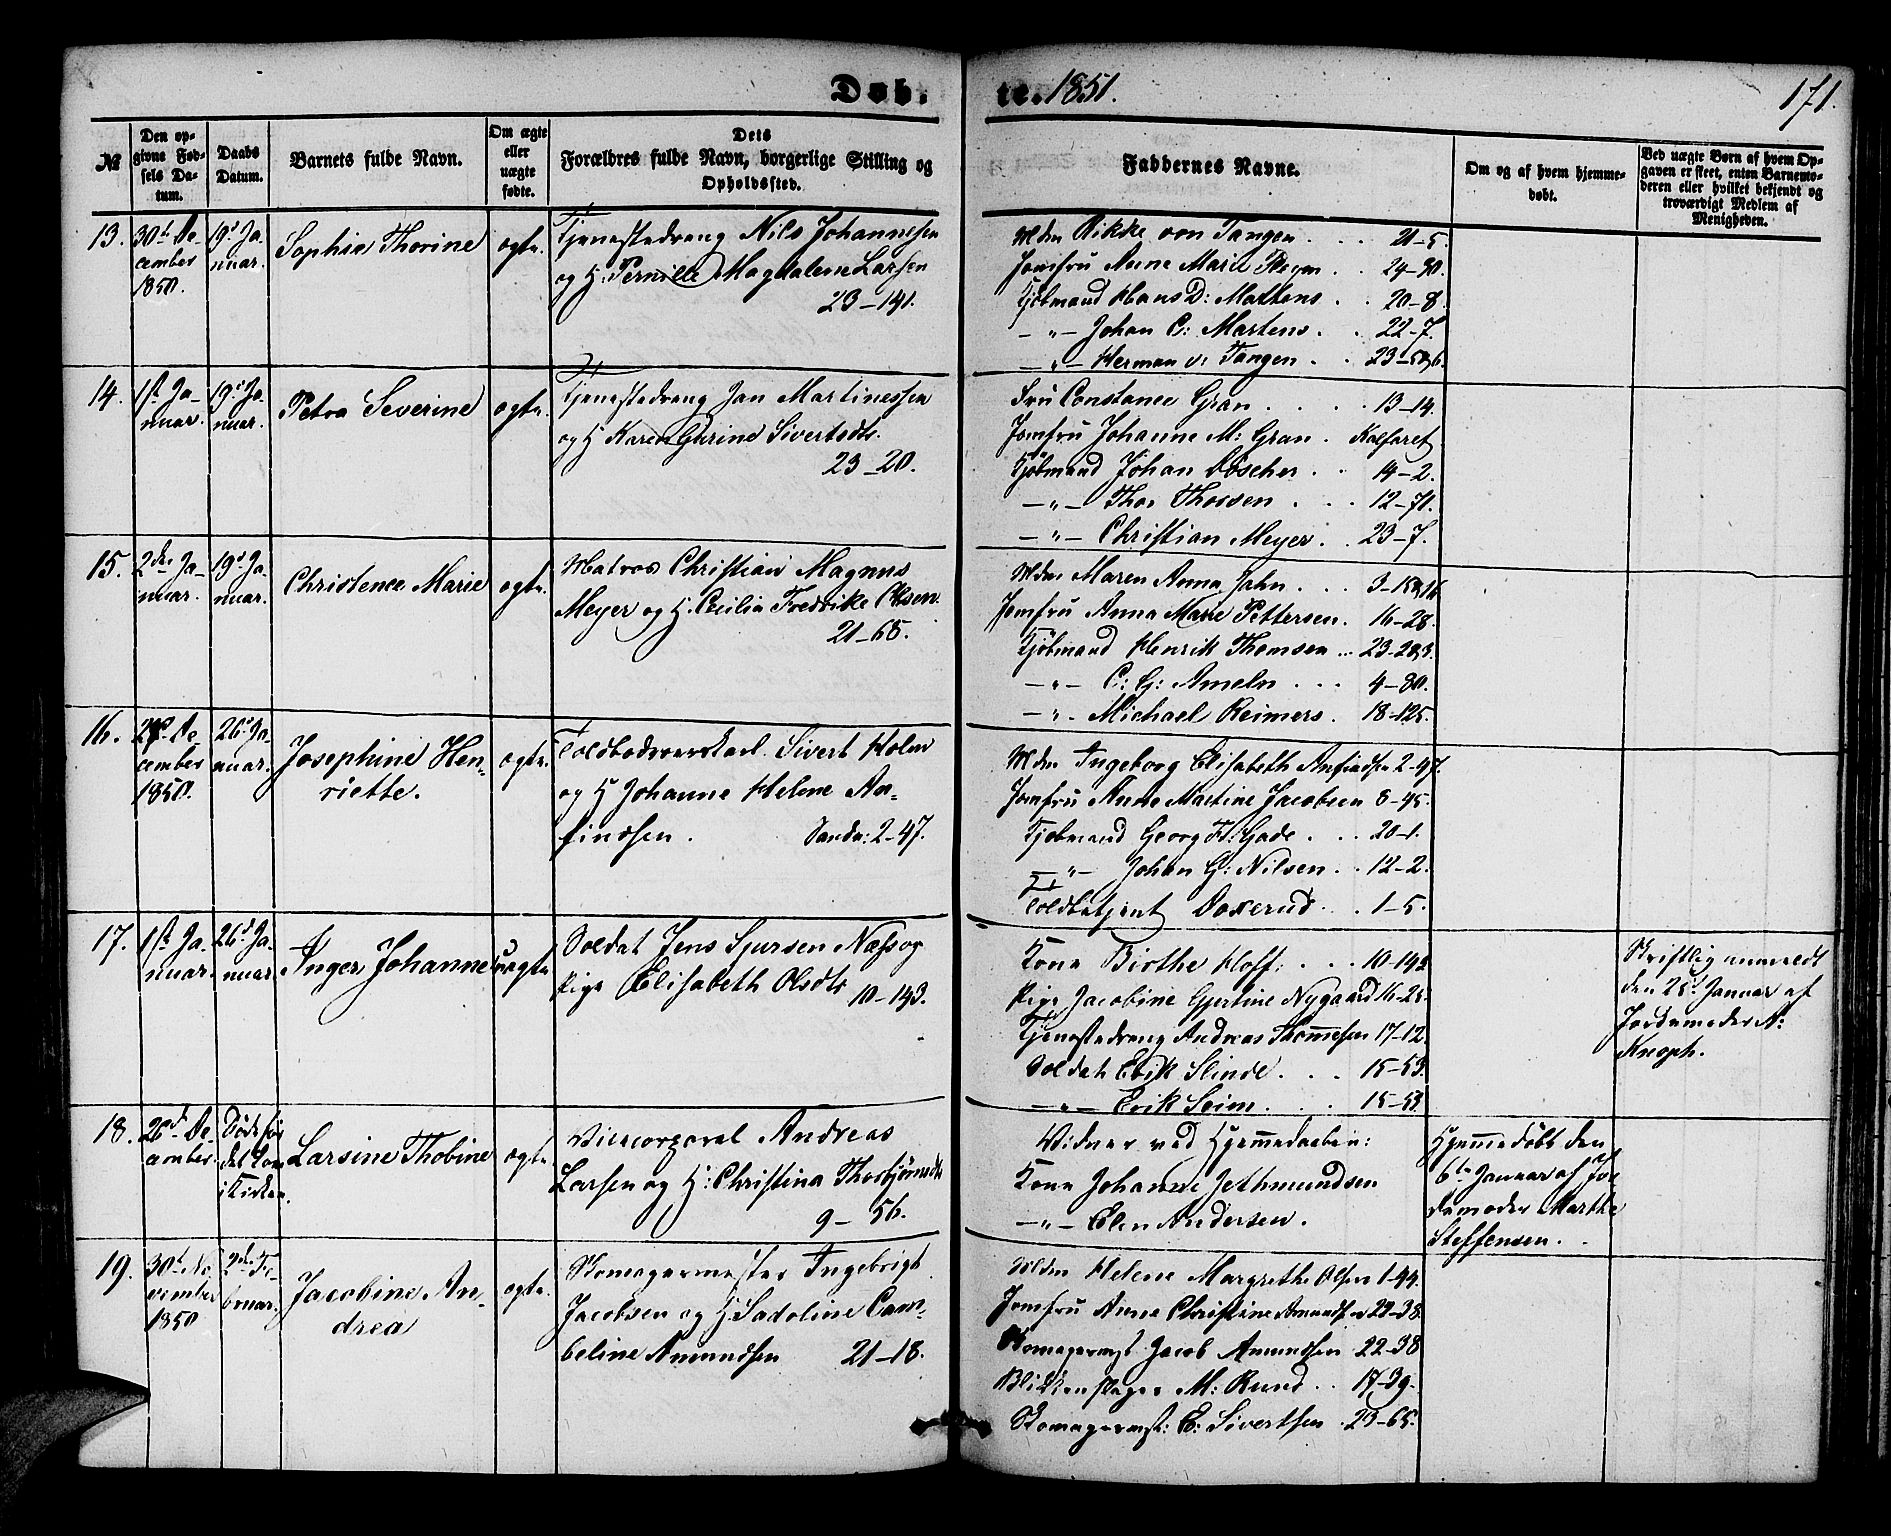 Døb-
te. 1851.
171.
№
Den op-
givne Fød-
sels Da-
tum.
Daabs
Datum.
Barnets fulde Navn.
Om ægte
eller
uægte
fødte.
Dets
Forældres fulde Navn, borgerlige Stilling og
Opholdssted.
Faddernes Navne.
Om og af hvem hjemme-
døbt.
Ved uægte Børn af hvem Op-
gaven er skeet, enten Barnemo-
deren eller hvilket bekjendt og
troværdigt Medlem af
Menigheden.
13.
30t De-
cember
1850.
19d Ja-
nuar.
Sophia Thorine
ægte.
Tjenestedreng Nils Johannesen
og H: Pernille Magdalene Larsen
23-141.
Mdm Rikke von Tangen . . . 21-5.
Jomfru Anne Marie Meyer . . 24-30.
Kjøbmand Hans D: Martens . . 20-8.
-"- Johan C: Martens . . 22-7.
-"- Herman v: Tangen . .
14.
1ste Ja-
nuar.
19d Ja-
nuar.
Petra Severine
ægte.
Tjenestedreng Jan Martinessen
og H Karen Gurine Sivertsdtr.
23-20.
Fru Constance Gran . . . . 13-14.
Jomfru Johanne M: Gran . Kalfaret
Kjøbmand Johan Döscher . . 14-2.
-"- Thor Thorsen . . . 12-71.
-"- Christian Meyer . . 23-7.
15.
2den Ja-
nuar.
19d Ja-
nuar.
Christence Marie
ægte.
Matros Christian Magnus
Meyer og H: Cecilia Fredrike Olsen.
21-65.
Mdm Maren Anna Jahn . . .
Jomfru Anna Marie Pettersen . 16-28.
Kjøbmand Henrik Thomsen . .
-"- C: G: Ameln . . . 4-80.
-"- Michael Reimers . 18-125.
16.
De-
cember
1850.
26d Ja-
nuar.
Josephine Hen-
riette.
ægte.
Toldbodroerskarl Sivert Holm
og H Johanne Helene An-
findsen. Sandv: 2-47.
Mdm Ingeborg Elisabeth Anfindsen 2-47.
Jomfru Anne Martine Jacobsen 8-45.
Kjøbmand Georg Fr: Gade . . . 20-1.
-"- Johan G: Nilsen . . 12-2.
Toldbetjent Doxerud . . 1-5.
17.
1ste Ja-
nuar.
26d Ja-
nuar.
Inger Johanne
uægte
Soldat Jens Sjursen Næss og
Pige Elisabeth Olsdtr 10-143.
Kone Birthe Hoff: . . . 10-143
Pige Jacobine Gjertine Nygaard 16-25.
Tjenestedreng Andreas Thomesen 17-12.
Soldat Erik Slinde . . . 15-53.
-"- Erik Seim . . . 15-53.
Skriftlig anmeldt
den 25d Januar af
Jordemoder A:
Knoph.
18.
26d De-
cember.
Døde før
det kom
i Kirken.
Larsine Thobine
ægte.
Vicecorporal Andreas
Larsen og H: Christina Thorbjörnsdtr
9-56.
Vidner ved Hjemmedaaben:
Kone Johanne Jethmundsen
-"- Elen Andersen.
Hjemmedøbt den
6te Januar af Jor-
demoder Marthe
Steffensen.
19.
30t No-
vember
1850
2den Fe-
bruar.
Jacobine An-
drea
ægte.
Skomagermester Ingebrigt
Jacobsen og H: Sadoline Cam-
beline Amundsen 21-18.
Mdm Helene Margrethe Olsen 1-44.
Jomfru Anne Christine Amundsen 22-38.
Skomagermst Jacob Amundsen 22-38
Blikkenslager M: Rund . . 17-39.
Skomagermst: E: Sivertsen . 23-65.